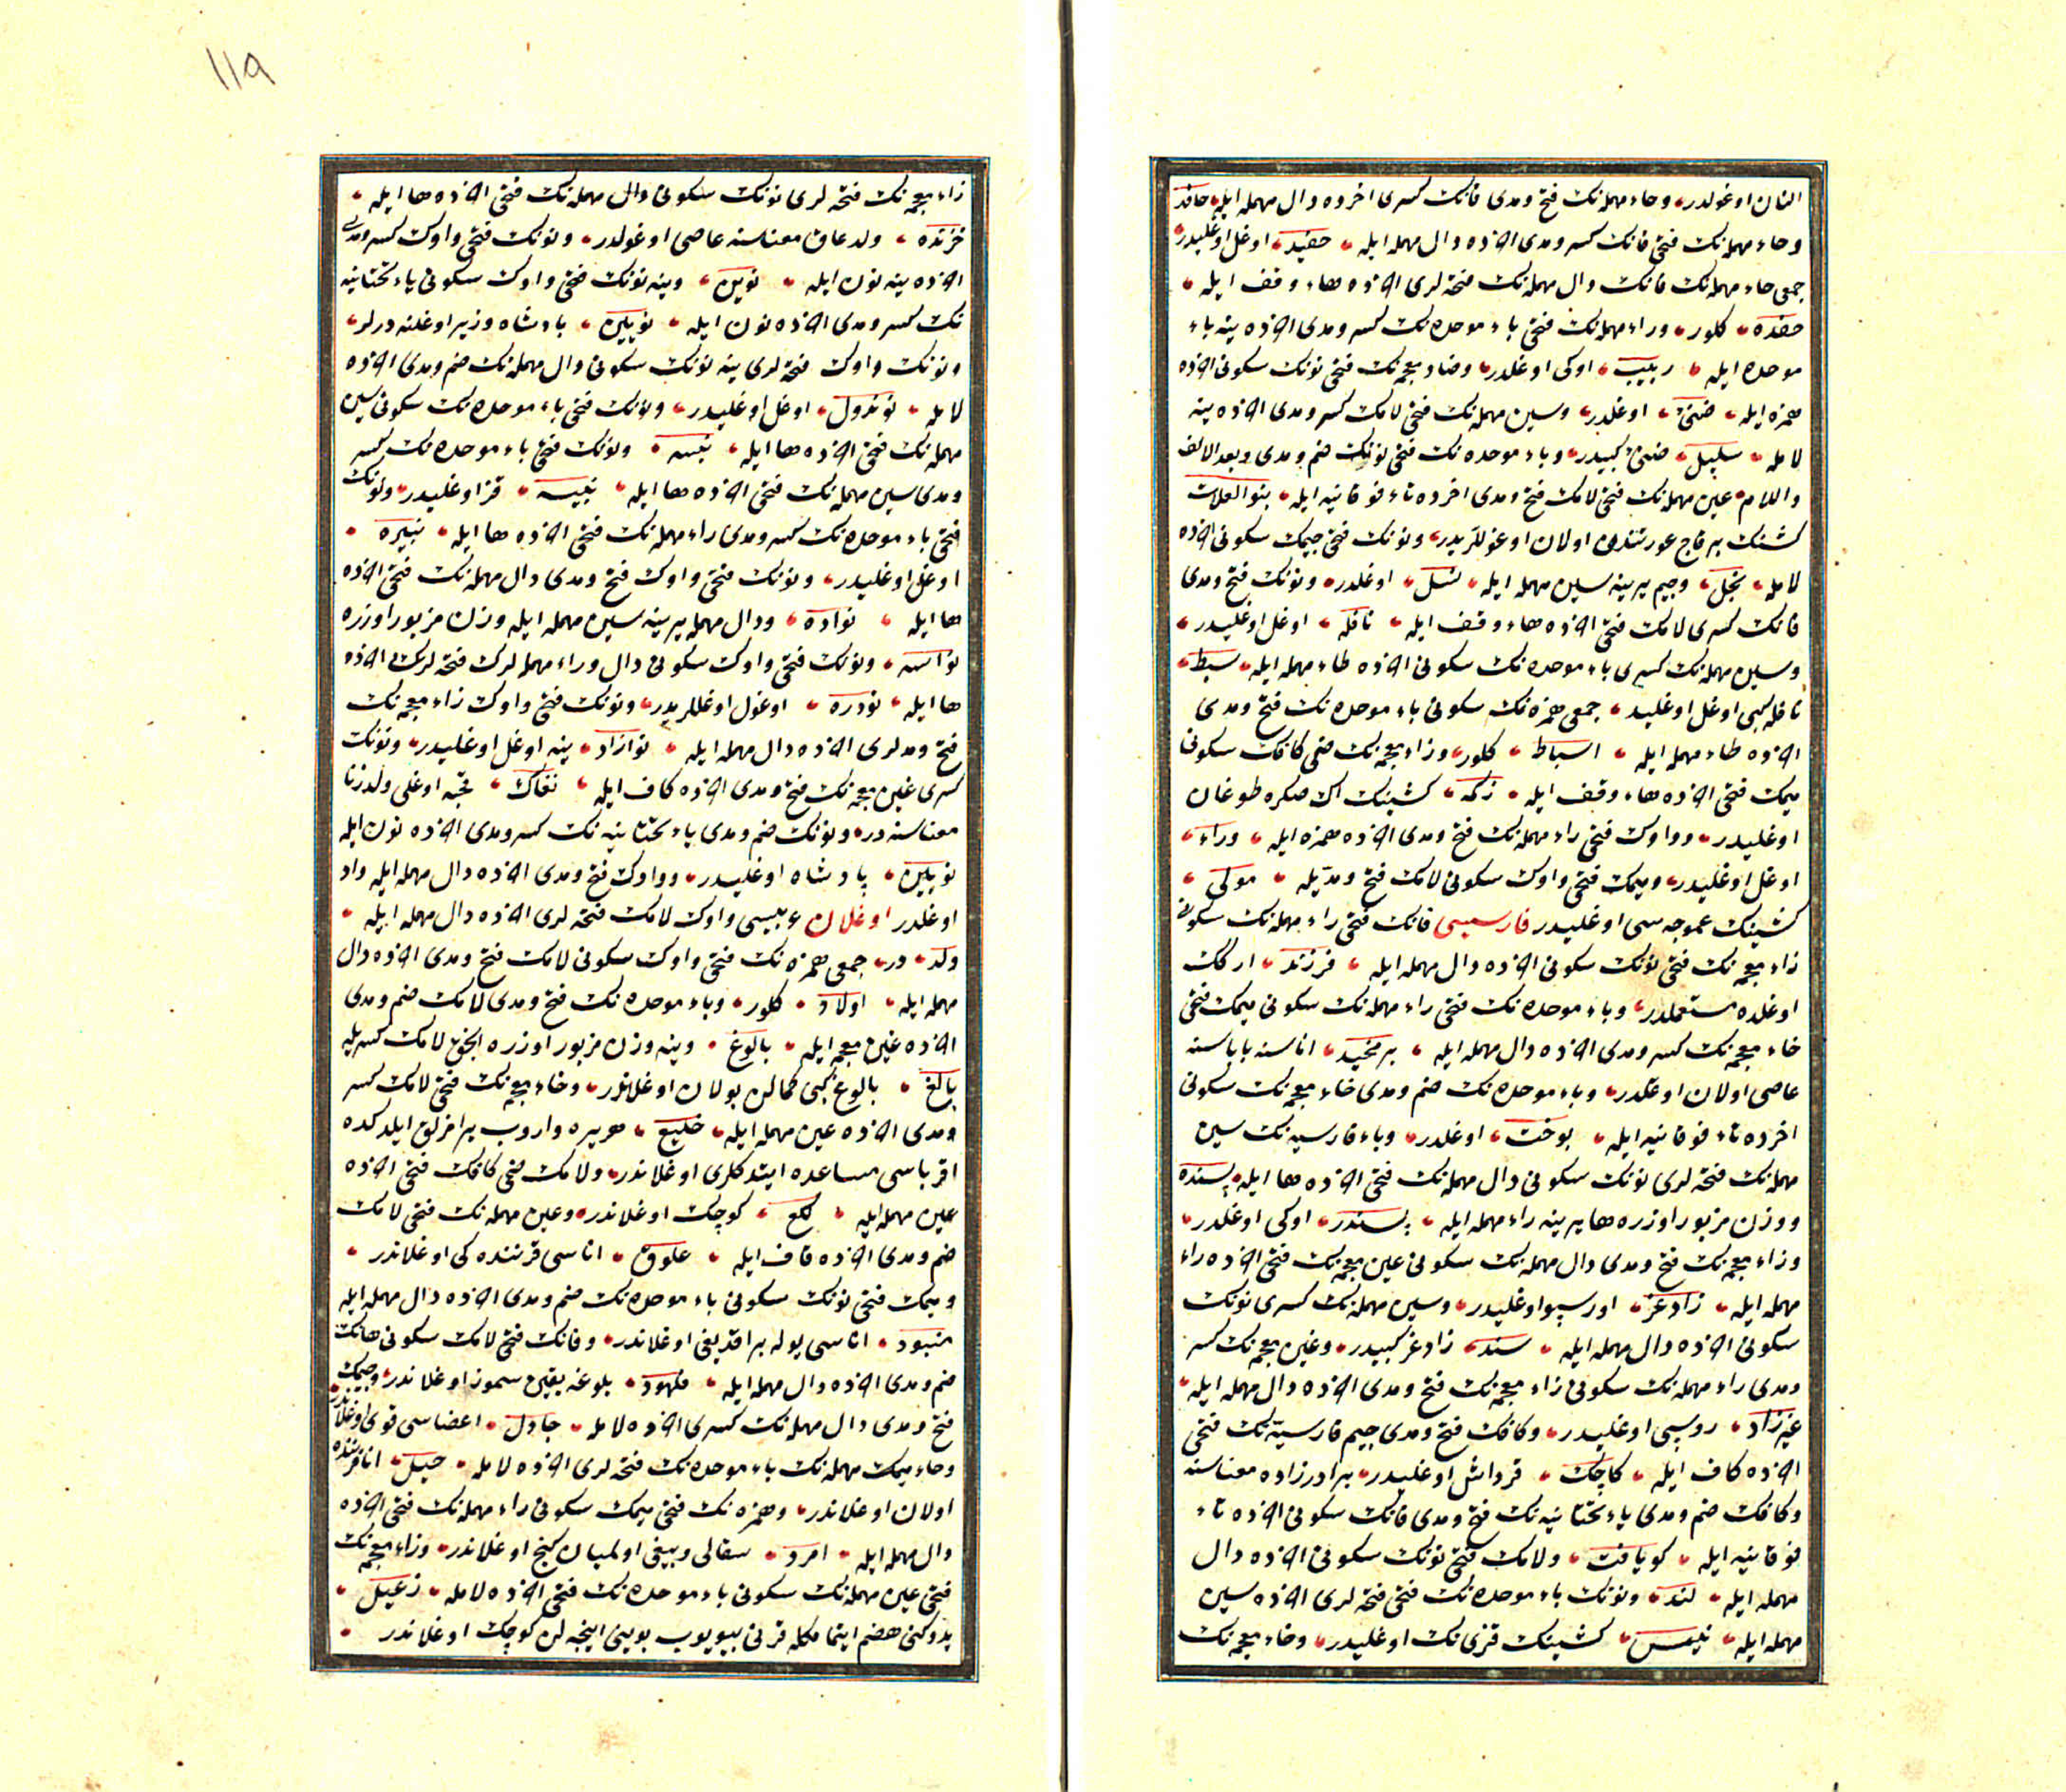 النان اوغولدر، وحاء مهمله نك فتح ومدی فانك كسری اخرده دال مهمله ایله، حافد
وحاء مهمله نك فتحی فانك كسر ومدی اخرده دال مهمله ایله، حفید، اوغل اوغلیدر،
جمعی حاء مهمله نك فانك دال مهمله نك فتحه لری اخرده هاء وقف ایله،
حفده، كلور، وراء مهمله نك فتحی باء موحده نك كسر ومدی اخرده ینه باء
موحده ایله، ربیب، اوكی اوغلدر، وضاد معجمه نك فتحی نونك سكونی اخرده
همزه ایله، ضنئ، اوغلدر، وسین مهمله نك فتحی لامك كسر ومدی اخرده ینه
لامله، سلیل، ضنئ كبیدر، وباء موحده نك فتحی نونك ضم ومدی وبعد الالف
واللام عین مهمله نك فتحی لامك فتح ومدی اخرده تاء فوقانیه ایله، بنو العلات
كشنك بر قاچ عورتندن اولان اوغوللریدر، ونونك فتحی جیمك سكونی اخرده
لامله، نجل، وجیم یرینه سین مهمله ایله، نسل، اوغلدر، ونونك فتح ومدی
فانك كسری لامك فتحی اخرده هاء وقف ایله، نافله، اوغل اوغلیدر،
وسین مهمله نك كسری باء موحده نك سكونی اخرده طاء مهمله ایله، سبط،
نافله كبی اوغل اوغلید، جمعی همزه نك سكونی باء موحده نك فتح ومدی
اخرده طاء مهمله ایله، اسباط، كلور، وزاء معجمه نك ضمی كافك سكونی
میمك فتحی اخرده هاء وقف ایله، زكمه، كشینك اك صكره طوغان
اوغلیدر، وواوك فتحی راء مهمله نك فتح ومدی اخرده همزه ایله، وراء،
اوغل اوغلیدر، ومیمك فتحی واوك سكونی لامك فتح ومدیله، مولی،
كشینك عموجه سی اوغلیدر فارسیسی فانك فتحی راء مهمله نك سكونی
زاء معجمه نك فتحی نونك سكونی اخرده دال مهمله ایله، فرزند، ارکك
اوغلده مستعملدر، وباء موحده نك فتحی راء مهمله نك سكونی میمك فتحی
خاء معجمه نك كسر ومدی اخرده دال مهمله ایله، برمخید، اناسنه باباسنه
عاصی اولان اوغلدر، وباء موحده نك ضم ومدی خاء معجمه نك سكونی
اخرده تاء فوقانیه ایله، بوخت، اوغلدر، وباء فارسیه نك سین
مهمله نك فتحه لری نونك سكونی دال مهمله نك فتحی اخرده ها ایله، پسنده
ووزن مزبور اوزره ها یرینه راء مهمله ایله، پسندر، اوكی اوغلدر،
وزاء معجمه نك فتح ومدی دال مهمله نك سكونی غین معجمه نك فتحی اخرده راء
مهمله ایله، زادغر، اورسپو اوغلیدر، وسین مهمله نك كسری نونك
سكونی اخرده دال مهمله ایله، سند، زادغر كبیدر، وغین معجمه نك كسر
ومدی راء مهمله نك سكونی زاء معجمه نك فتح ومدی اخرده دال مهمله ایله،
غیرزاد، روسپی اوغلیدر، وكافك فتح ومدی جیم فارسیه نك فتحی
اخرده كاف ایله، كاچك، قرداش اوغلیدر، برادرزاده معناسنه
وكافك ضم ومدی یاء تحتانیه نك فتح ومدی فانك سكونی اخرده تاء
فوقانیه ایله، كویافت، ولامك فتحی نونك سكونی اخرده دال
مهمله ایله، لند، ونونك باء موحده نك فتحی فتحه لری اخرده سین
مهمله ایله، نبس، كشینك قزی نك اوغلیدر، وخاء معجمه نك
١١٩
زاء معجمه نك فتحه لری نونك سكونی دال مهمله نك فتحی اخرده ها ایله،
خزنده، ولد عاق معناسنه عاصی اوغولدر، ونونك فتحی واوك كسر ومدی
اخرده ینه نون ایله، نوین، وینه نونك ضمی واوك سكونی یاء تحتانیه
نك كسر ومدی اخرده نون ایله، نویین، پادشاه وزیر اوغلنه درلر،
ونونك واوك فتحه لری ینه نونك سكونی دال مهمله نك ضم ومدی اخرده
لامله، نوندول، اوغل اوغلیدر، ونونك فتحی باء موحده نك سكونی سین
مهمله نك فتحی اخرده ها ایله، نبسه، ونونك فتحی باء موحده نك كسر
ومدی سین مهمله نك فتحی اخرده ها ایله، نبیسه، قز اوغلیدر، ونونك
فتحی باء موحده نك كسر ومدی راء مهمله نك فتحی اخرده ها ایله، نبیره،
اوغل اوغلیدر، ونونك فتحی واوك فتح ومدی دال مهمله نك فتحی اخرده
ها ایله، نواده، ودال مهمله یرینه سین مهمله ایله وزن مزبور اوزره
نواسه، ونونك فتحی واوك سكونی دال وراء مهمله لرك فتحه لری اخرده
ها ایله، نودره، اوغول اوغللریدر، ونونك فتحی واوك زاء معجمه نك
فتح ومدلری اخرده دال مهمله ایله، نوازاد، ینه اوغل اوغلیدر، ونونك
كسری غین معجمه نك فتح ومدی اخرده كاف ایله، نغاك، قحبه اوغلی ولد زنا
معناسنه در، ونونك ضم ومدی یاء تحتانیه نك كسر ومدی اخرده نون ایله
نویین، پادشاه اوغلیدر، وواوك فتح ومدی اخرده دال مهمله ایله واد
اوغلدر اوغلان عربیسی واوك لامك فتحه لری اخرده دال مهمله ایله،
ولد، در، جمعی همزه نك فتحی واوك سكونی لامك فتح ومدی اخرده دال
مهمله ایله، اولاد، كلور، وباء موحده نك فتح ومدی لامك ضم ومدی
اخرده غین معجمه ایله، بالوغ، وینه وزن مزبور اوزره انجق لامك كسریله
بالغ، بالوغ كبی كمالن بولان اوغلاندر، وخاء معجمه نك فتحی لامك كسر
ومدی اخرده عین مهمله ایله، خلیع، هر یره واروب یرامزلق ایلدكده
اقرباسی مساعده ایتدكلری اوغلاندر، ولامك ضمی كافك فتحی اخرده
عین مهمله ایله، لكع، كوچك اوغلاندر، وعین مهمله نك فتحی لامك
ضم ومدی اخرده قاف ایله، علوق، اناسی قرننده كی اوغلاندر،
ومیمك فتحی نونك سكونی باء موحده نك ضم ومدی اخرده دال مهمله ایله
منبود، اناسی یوله براقدیغی اوغلاندر، وفانك فتحی لامك سكونی هانك
ضم ومدی اخرده دال مهمله ایله، فلهود، بلوغه یقین سموز اوغلاندر، وجیمك
فتح ومدی دال مهمله نك كسری اخرده لامله، جادل، اعضاسی قوی اوغلاندر،
وحاء میمك مهمله نك باء موحده نك فتحه لری اخرده لامله، حبل، انا قرننده
اولان اوغلاندر، وهمزه نك فتحی میمك سكونی راء مهمله نك فتحی اخرده
دال مهمله ایله، امرد، سقالی وبیغی اولمیان كنج اوغلاندر، وزاء معجمه نك
فتحی عین مهمله نك سكونی باء موحده نك فتحی اخرده لامله، زعبل،
یدوكنی هضم ایتمامكله قرنی بیویوب بوینی اینجه لن كوچك اوغلاندر،